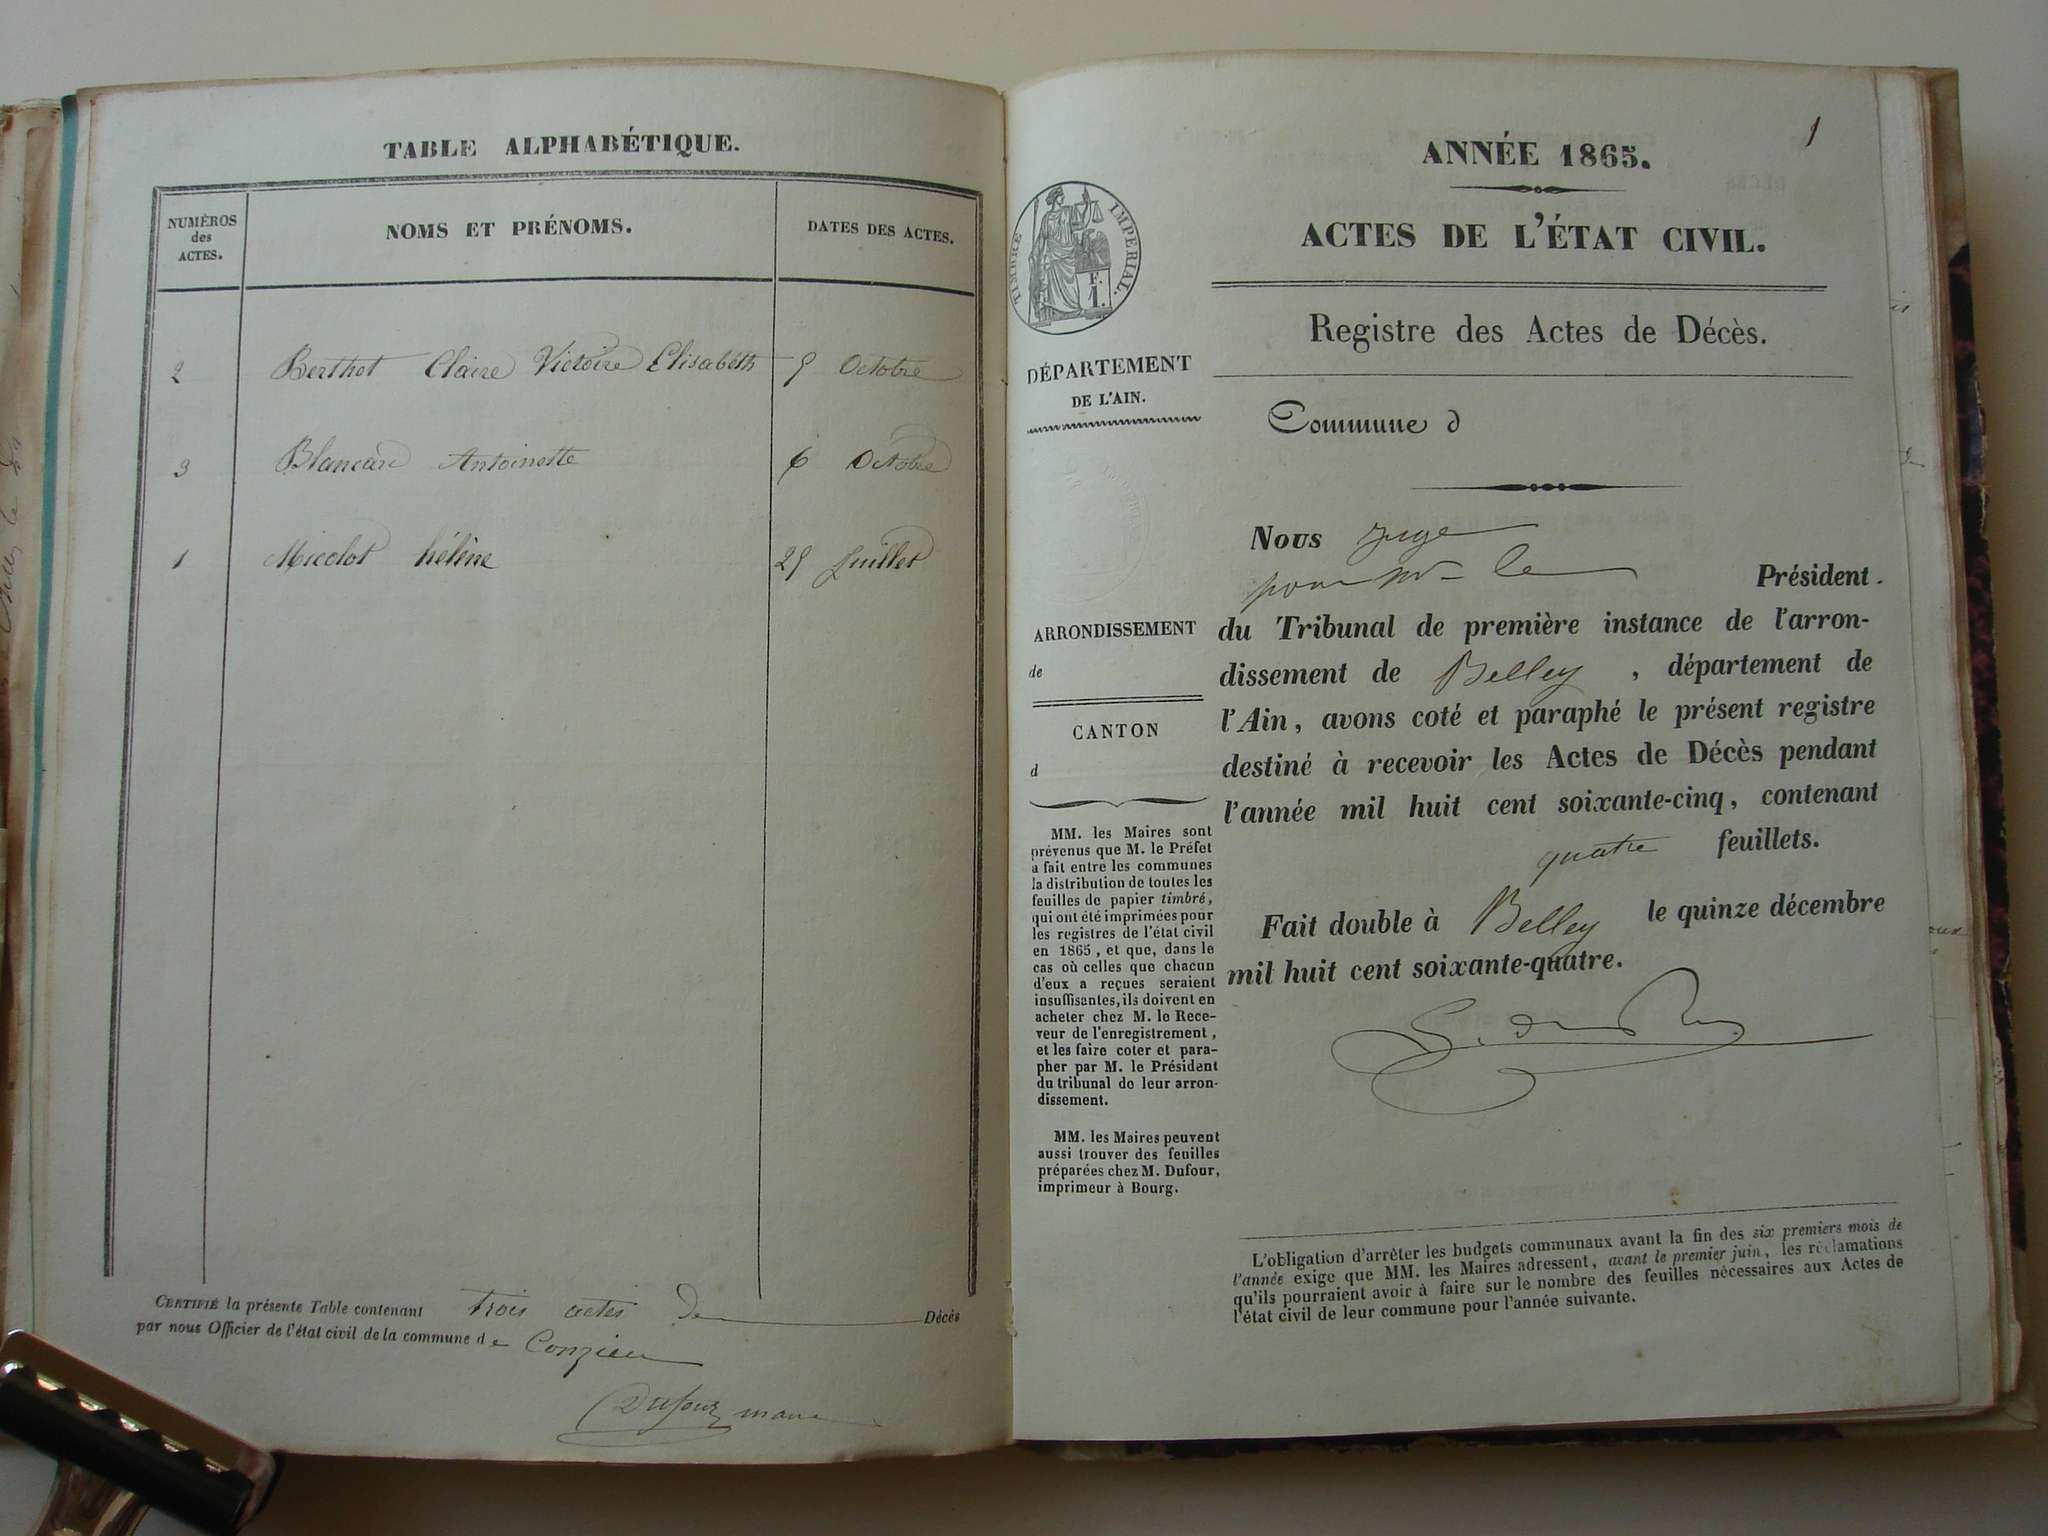 TABLE ALPHABÉTIQUE.
NUMÉROS
des
ACTES.
NOMS ET PRÉNOMS.
DATES DES ACTES.
2 Berthet Claire Victoire Elisabeth 5 Octobre
3 Blancard Antoinette 6 Octobre
1 Micolot hélène 25 Juillet
CERTIFIÉ la présente Table contenant trois actes de Décès
par nous Officier de l'état civil de la commune de Conzieu
Dufour maire
1
ANNÉE 1865.
ACTES DE L'ÉTAT CIVIL.
Registre des Actes de Décès.
TIMBRE IMPÉRIAL.
F.
1.
DÉPARTEMENT
DE L'AIN.
Commune d
Nous juge
pour Mr le Président
du Tribunal de première instance de l'arron-
dissement de Belley, département de
l'Ain, avons coté et paraphé le présent registre
destiné à recevoir les Actes de Décès pendant
l'année mil huit cent soixante-cinq, contenant
quatre feuillets.
Fait double à Belley le quinze décembre
mil huit cent soixante-quatre.
ARRONDISSEMENT
de
CANTON
d
MM. les Maires sont
prévenus que M. le Préfet
a fait entre les communes
la distribution de toutes les
feuilles de papier timbré,
qui ont été imprimées pour
les registres de l'état civil
en 1865, et que, dans le
cas où celles que chacun
d'eux a reçues seraient
insuffisantes, ils doivent en
acheter chez M. le Rece-
veur de l'enregistrement,
et les faire coter et para-
pher par M. le Président
du tribunal de leur arron-
dissement.
MM. les Maires peuvent
aussi trouver des feuilles
préparées chez M. Dufour,
imprimeur à Bourg.
L'obligation d'arrêter les budgets communaux avant la fin des six premiers mois de
l'année exige que MM. les Maires adressent, avant le premier juin, les réclamations
qu'ils pourraient avoir à faire sur le nombre des feuilles nécessaires aux Actes de
l'état civil de leur commune pour l'année suivante.